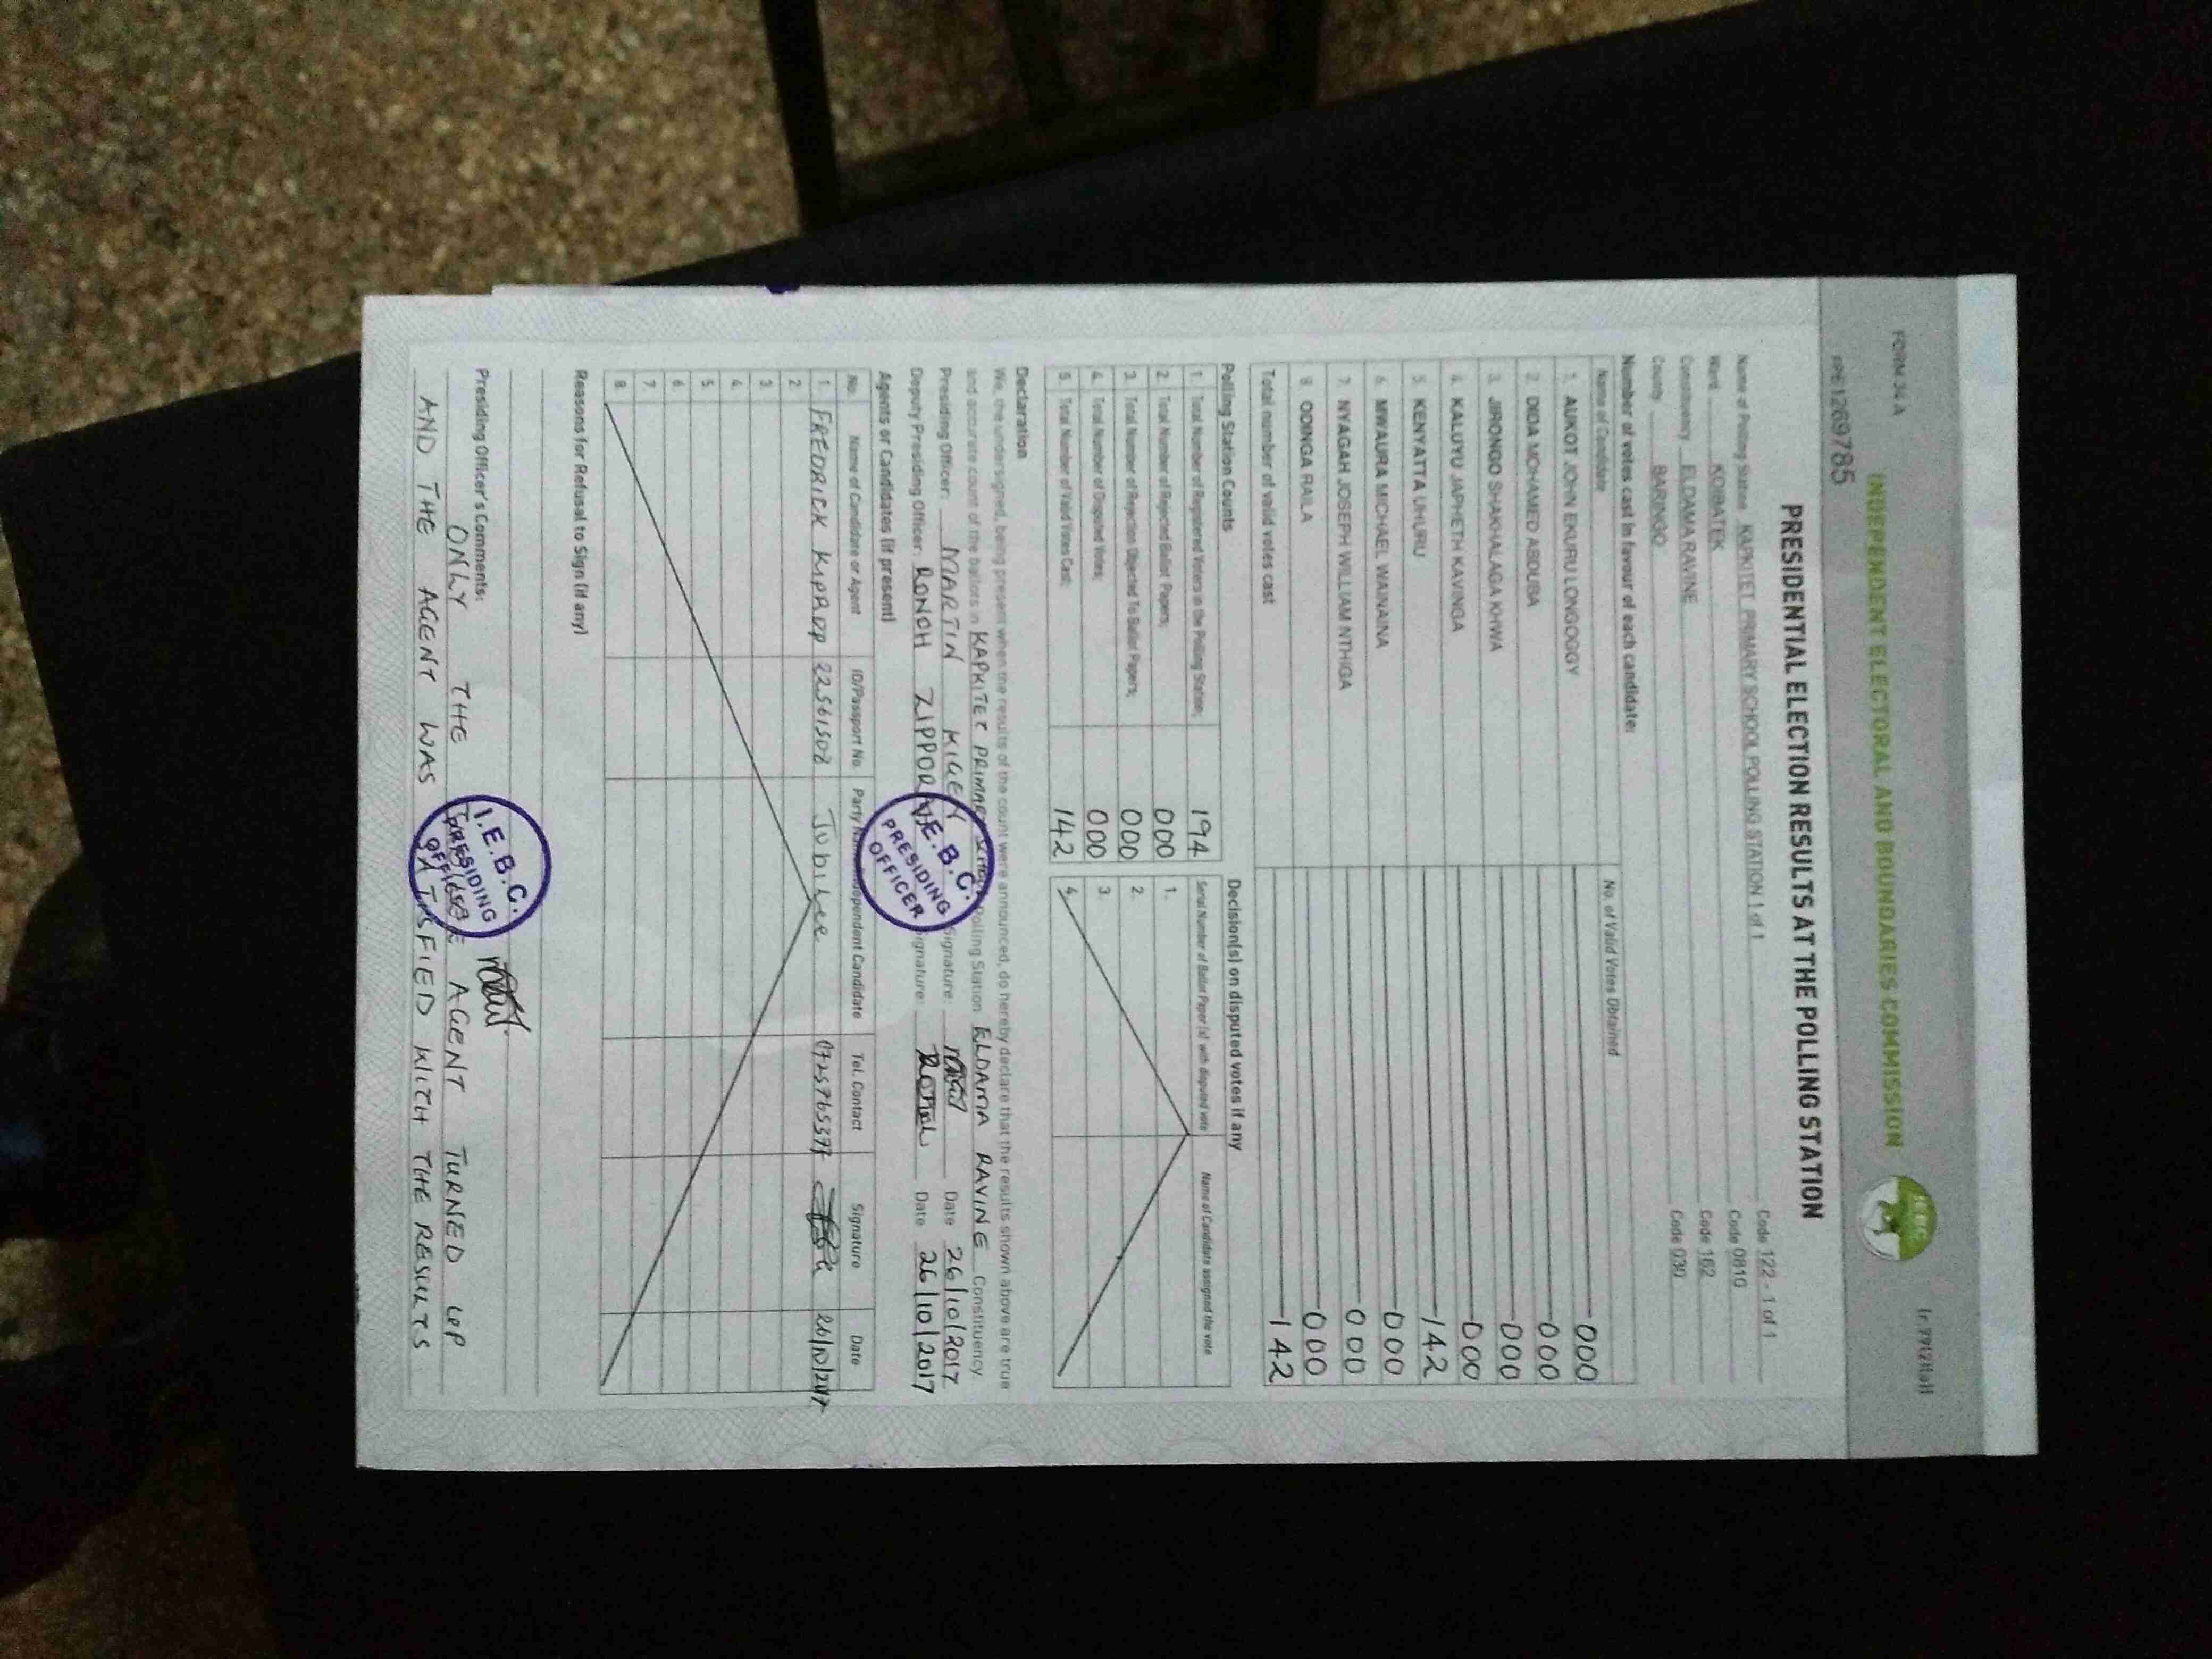 FORM 34 A
INDEPENDENT ELECTORAL AND BOUNDARIES COMMISSION
IEBC
PRESIDENTIAL ELECTION RESULTS AT THE POLLING STATION
Name of Polling Station KAPKITET PRIMARY SCHOOL POLLING STATION 1 of 1 Code 122 - 1 of 1
Ward KOIBATEK Code 0810
Constituency ELDAMA RAVINE Code 162
County BARINGO Code 030
Number of votes cast in favour of each candidate:
Name of Candidate No. of Valid Votes Obtained
1. AUKOT JOHN EKURU LONGOGGY 000
2. DIDA MOHAMED ABDUBA 000
3. JIRONGO SHAKHALAGA KHWA 000
4. KALUYU JAPHETH KAVINGA 000
5. KENYATTA UHURU 142
6. MWAURA MICHAEL WAINAINA 000
7. NYAGAH JOSEPH WILLIAM NTHIGA 000
8. ODINGA RAILA 000
Total number of valid votes cast 142
Polling Station Counts
1. Total Number of Registered Voters in the Polling Station; 194
2. Total Number of Rejected Ballot Papers; 000
3. Total Number of Rejection Objected To Ballot Papers; 000
4. Total Number of Disputed Votes; 000
5. Total Number of Valid Votes Cast; 142
Decision(s) on disputed votes if any
Serial Number of Ballot Paper (s) with disputed vote Name of Candidate assigned the vote
1.
2.
3.
4.
Declaration
We, the undersigned, being present when the results of the count were announced, do hereby declare that the results shown above are true
and accurate count of the ballots in KAPKITET PRIMARY SCHOOL Polling Station ELDAMA RAVINE Constituency.
Presiding Officer: MARTIN KIGEN Signature: Date 26/10/2017
Deputy Presiding Officer: RONOH ZIPPORA Signature: Ronoh Date 26/10/2017
I.E.B.C. PRESIDING OFFICER
Agents or Candidates (if present)
No. Name of Candidate or Agent ID/Passport No. Party Name/Independent Candidate Tel. Contact Signature Date
1. FREDRICK KIPROP 22561508 Jubilee 0725765377 26/10/2017
2.
3.
4.
5.
6.
7.
8.
Reasons for Refusal to Sign (if any)
Presiding Officer's Comments:
ONLY THE AGENT TURNED UP
AND THE AGENT WAS SATISFIED WITH THE RESULTS
I.E.B.C. PRESIDING OFFICER